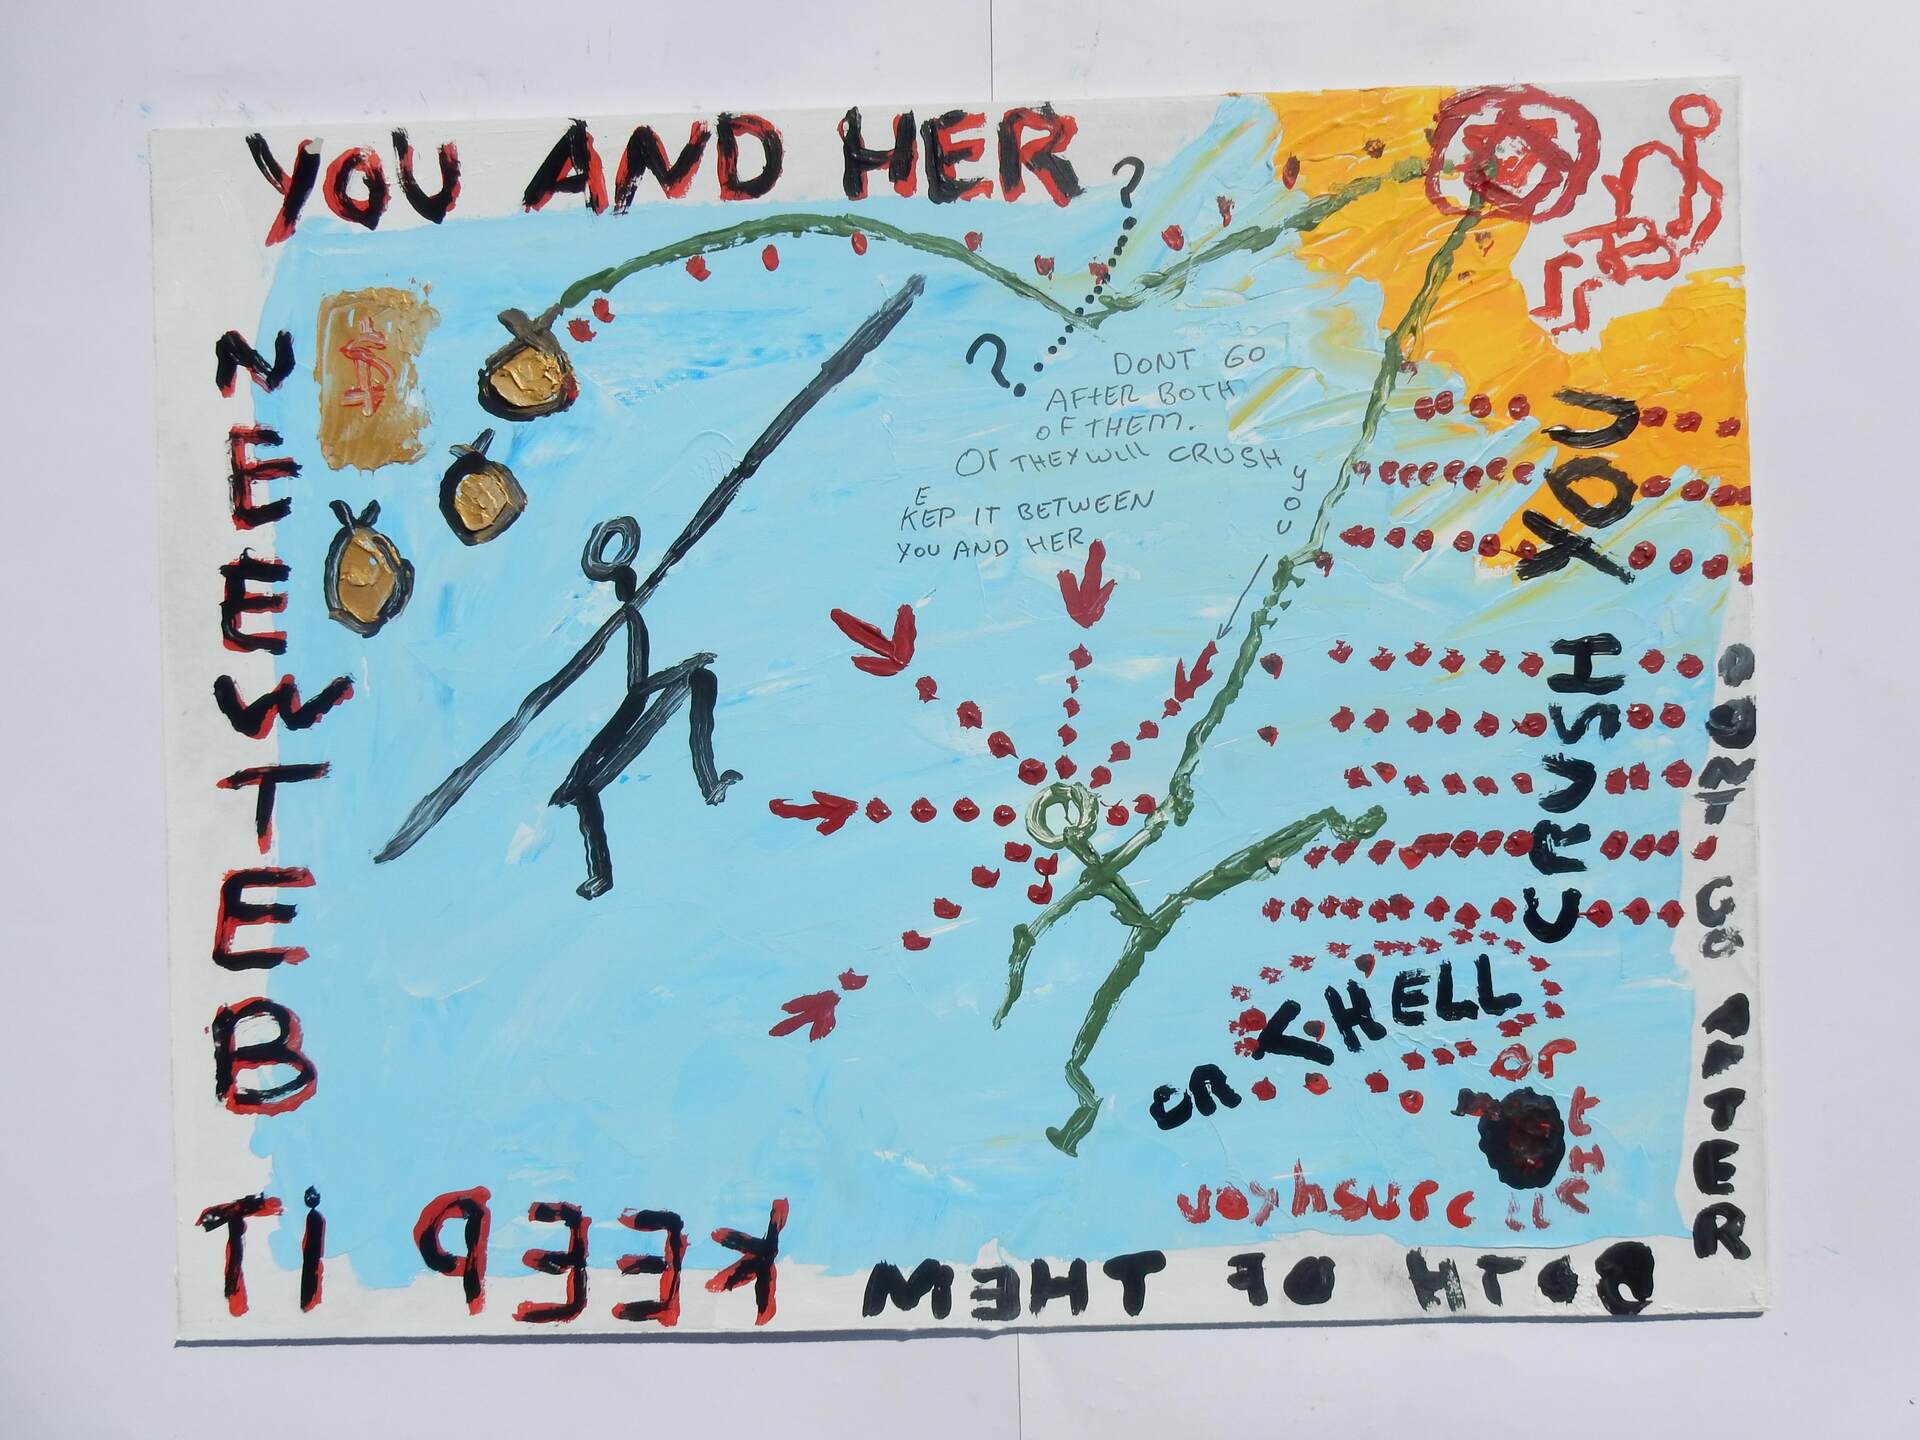 YOU AND HER
KEEP iT
BETWEEN
$
?
?
DONT GO
AFtER BOTH
OF THEM.
Or THEY WiLL CRUSH
you
KEEP IT BETWEEN
YOU AND HER
DONT GO AFTER
BOTH OF THEM
OR THELL
CRUSH YOU
or
crushyou